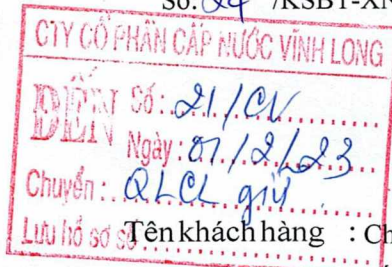 Số: 24 /KSBT-XN
CTY CỔ PHẦN CẤP NƯỚC VĨNH LONG
ĐẾN
Số: 21/CV
Ngày: 01/2/23
Chuyển: QLCL giữ
Lưu hồ sơ số
Tên khách hàng : Ch